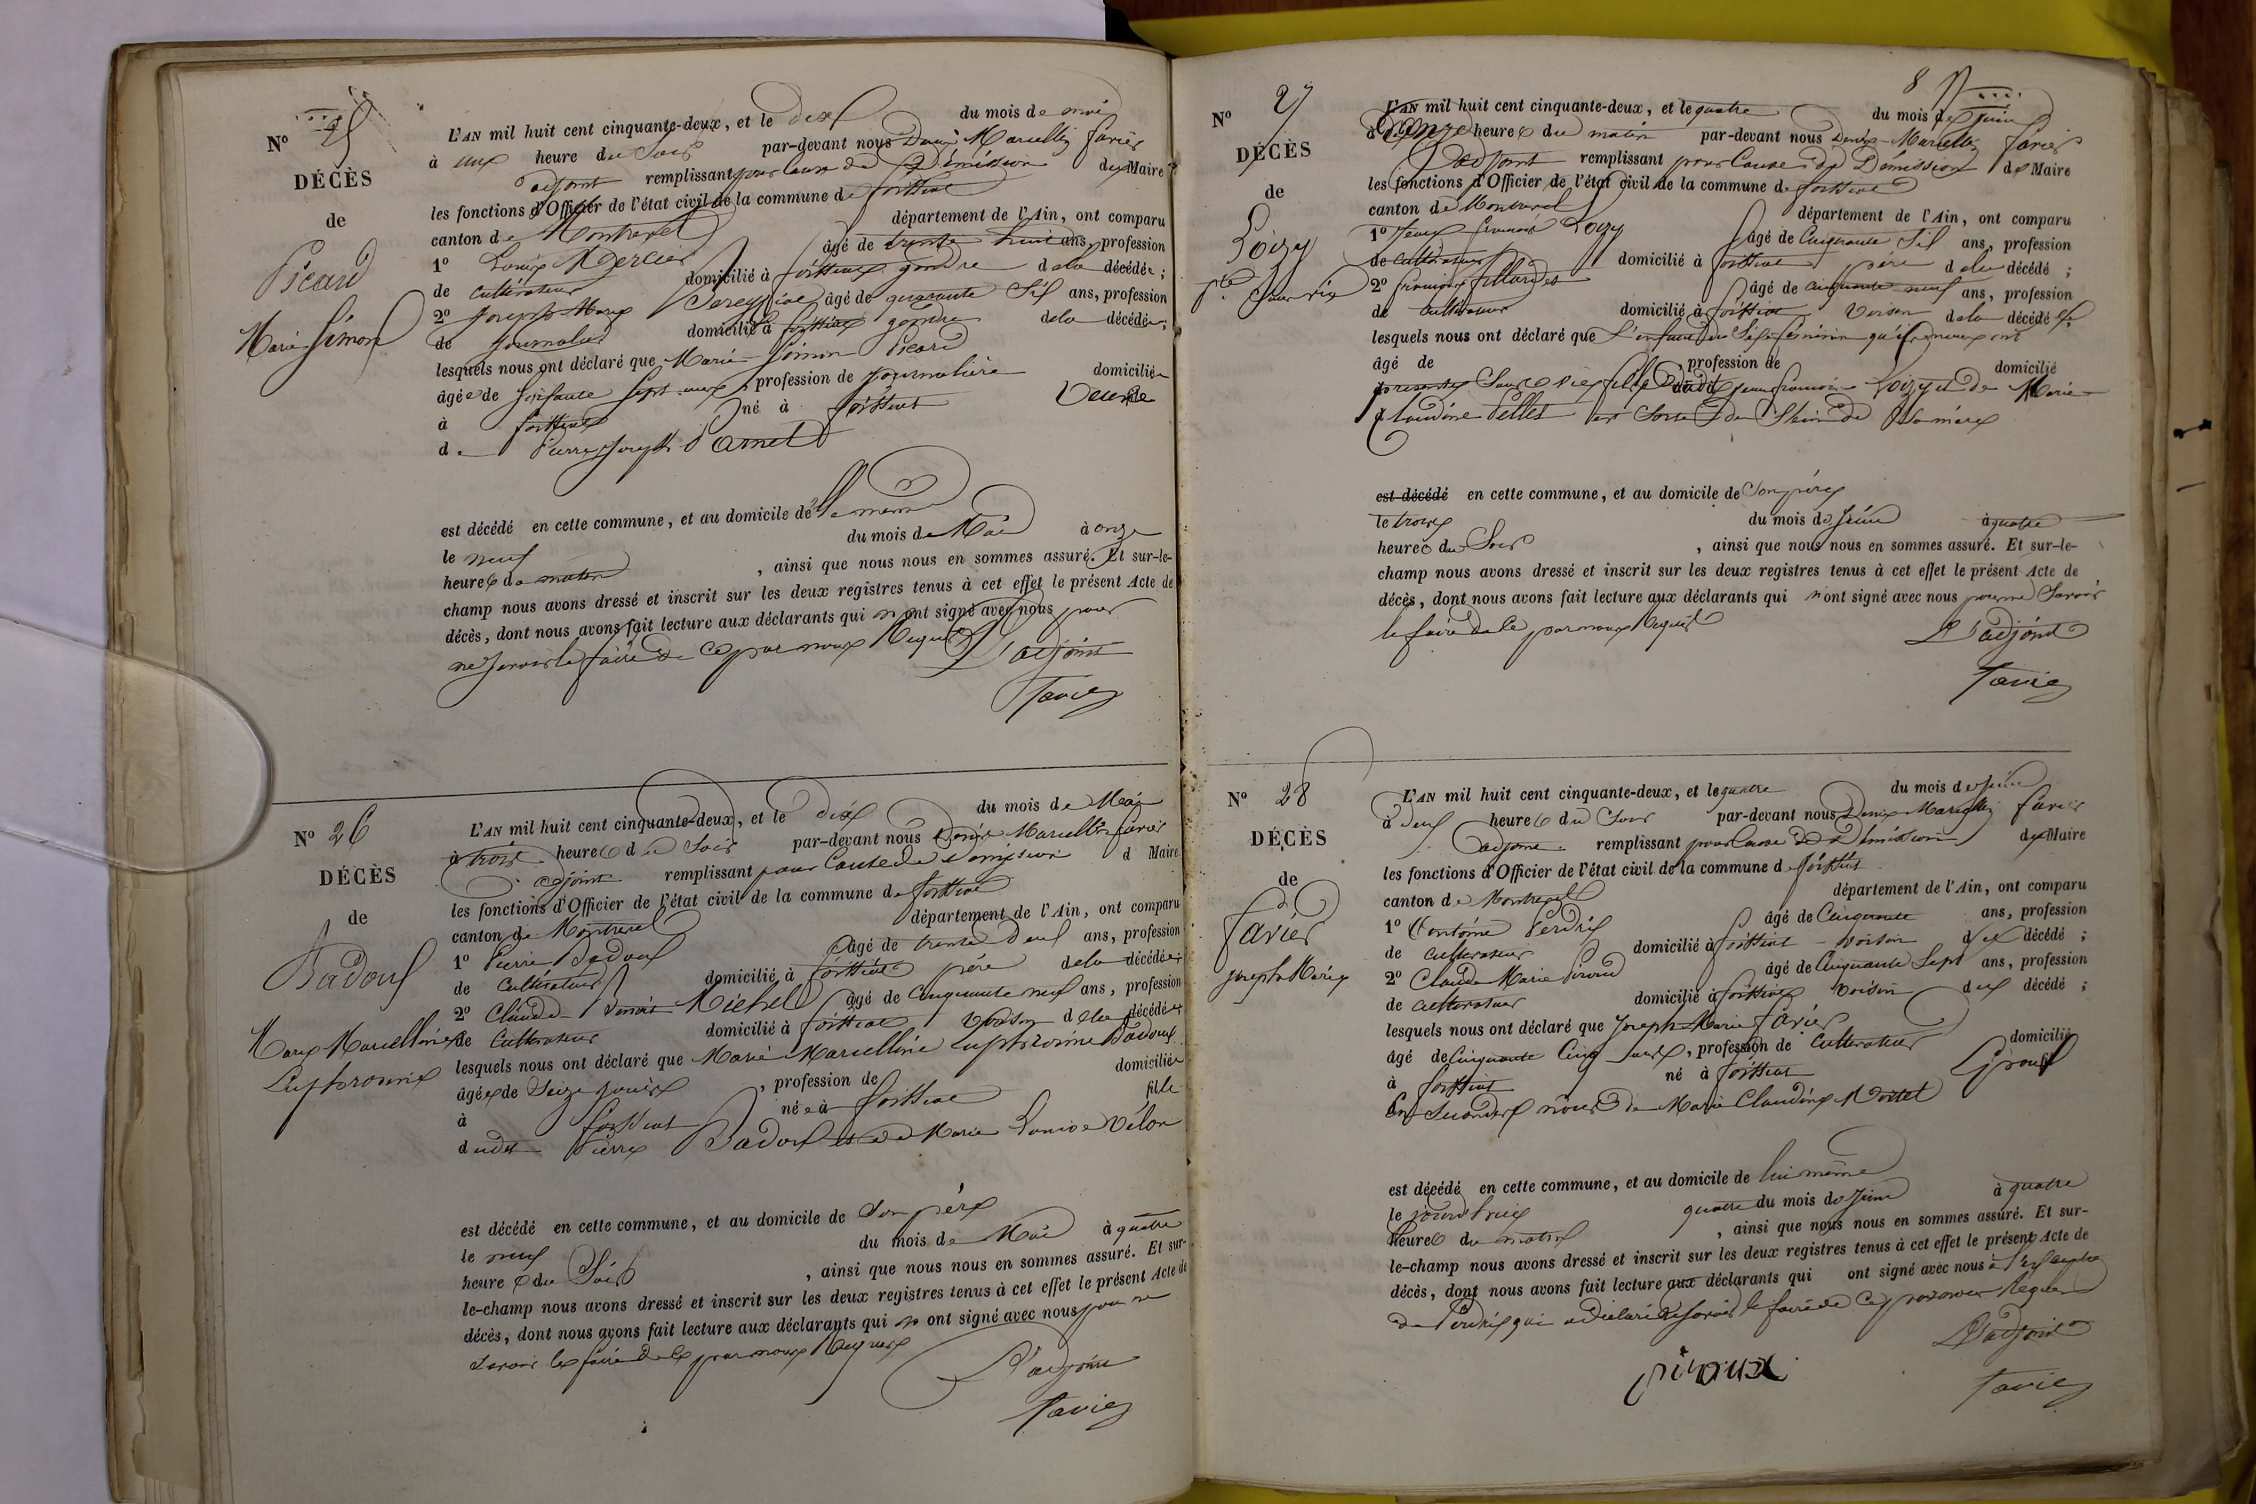 N° 25
DÉCÈS
de
Picard
Marie Simone
L'AN mil huit cent cinquante-deux, et le dix du mois de mai
à une heure du soir par-devant nous Denis Marcellin favier
adjoint remplissant pour cause de Démission de Maire
les fonctions d'Officier de l'état civil de la commune de foissiat
canton de Montrevel département de l'Ain, ont comparu
1° Louis Mercier âgé de trente huit ans, profession
de cultivateur domicilié à foissiat gendre de la décédée ;
2° Joseph Marie âgé de quarante six ans, profession
de journalier domicilié à foissiat gendre de la décédée ;
lesquels nous ont déclaré que Marie Simone Picard
âgée de soixante sept ans, profession de journalière domiciliée
à foissiat né à foissiat Veuve
de Pierre Joseph Pamet
est décédé en cette commune, et au domicile de elle même
le neuf du mois de Mai à onze
heures du matin, ainsi que nous nous en sommes assuré. Et sur-le-
champ nous avons dressé et inscrit sur les deux registres tenus à cet effet le présent Acte de
décès, dont nous avons fait lecture aux déclarants qui n'ont signé avec nous pour
ne savoir le faire de ce par nous Requis
L'adjoint
Favier
N° 26
DÉCÈS
de
Badoux
Marie Marcelline
Euphrosine
L'AN mil huit cent cinquante-deux, et le dix du mois de Mai
à trois heures du soir par-devant nous Denis Marcellin favier
adjoint remplissant pour cause de Démission d Maire
les fonctions d'Officier de l'état civil de la commune de foissiat
canton de Montrevel département de l'Ain, ont comparu
1° Pierre Badoux âgé de trente deux ans, profession
de cultivateur domicilié à foissiat père de la décédée ;
2° Claude Benoit Michel âgé de cinquante neuf ans, profession
de cultivateur domicilié à foissiat voisin de la décédée
lesquels nous ont déclaré que Marie Marcelline Euphrosine Badoux
âgée de seize jours, profession de domiciliée
à foissiat née à foissiat fille
dudit Pierre Badoux et de Marie Louise Vélon
est décédé en cette commune, et au domicile de son père
le neuf du mois de Mai à quatre
heure du Soir, ainsi que nous nous en sommes assuré. Et sur-
le-champ nous avons dressé et inscrit sur les deux registres tenus à cet effet le présent Acte de
décès, dont nous avons fait lecture aux déclarants qui n'ont signé avec nous pour ne
savoir le faire de ce par nous Requis
L'adjoint
Favier
8
N° 27
DÉCÈS
de
Loizy
L'AN mil huit cent cinquante-deux, et le quatre du mois de juin
à onze heures du matin par-devant nous Denis Marcellin favier
adjoint remplissant pour cause de Démission de Maire
les fonctions d'Officier de l'état civil de la commune de foissiat
canton de Montrevel département de l'Ain, ont comparu
1° Jean françois Loizy âgé de cinquante six ans, profession
de cultivateur domicilié à foissiat père de la décédé ;
2° françois âgé de cinquante neuf ans, profession
de cultivateur domicilié à foissiat voisin de la décédé
lesquels nous ont déclaré que L'enfant du sexe féminin qu'ils nous ont
âgé de, profession de domicilié
présenté sans vie fille dudit jean françois Loizy et de Marie
Claudine Pellet est sortie du sein de sa mère
est décédé en cette commune, et au domicile de son père
le trois du mois de juin à quatre
heures du soir, ainsi que nous nous en sommes assuré. Et sur-le-
champ nous avons dressé et inscrit sur les deux registres tenus à cet effet le présent Acte de
décès, dont nous avons fait lecture aux déclarants qui n'ont signé avec nous pour ne savoir
le faire de ce par nous Requis
L'adjoint
Favier
N° 28
DÉCÈS
de
favier
joseph Marie
L'AN mil huit cent cinquante-deux, et le quatre du mois de juin
à deux heures du soir par-devant nous Denis Marcellin favier
adjoint remplissant pour cause de Démission de Maire
les fonctions d'Officier de l'état civil de la commune de foissiat
canton de Montrevel département de l'Ain, ont comparu
1° Antoine Perdrix âgé de cinquante ans, profession
de cultivateur domicilié à foissiat voisin de décédé ;
2° Claude Marie Piroud âgé de cinquante sept ans, profession
de cultivateur domicilié à foissiat voisin de décédé ;
lesquels nous ont déclaré que Joseph Marie favier
âgé de cinquante cinq ans, profession de cultivateur domicilié
à foissiat né à foissiat Epoux
En secondes noces de Marie Claudine Moitel
est décédé en cette commune, et au domicile de lui même
le jourd'hui quatre du mois de juin à quatre
heures du matin, ainsi que nous nous en sommes assuré. Et sur-
le-champ nous avons dressé et inscrit sur les deux registres tenus à cet effet le présent Acte de
décès, dont nous avons fait lecture aux déclarants qui ont signé avec nous à l'exception
de Perdrix qui a déclaré ne savoir le faire de ce par nous Requis
L'adjoint
Favier